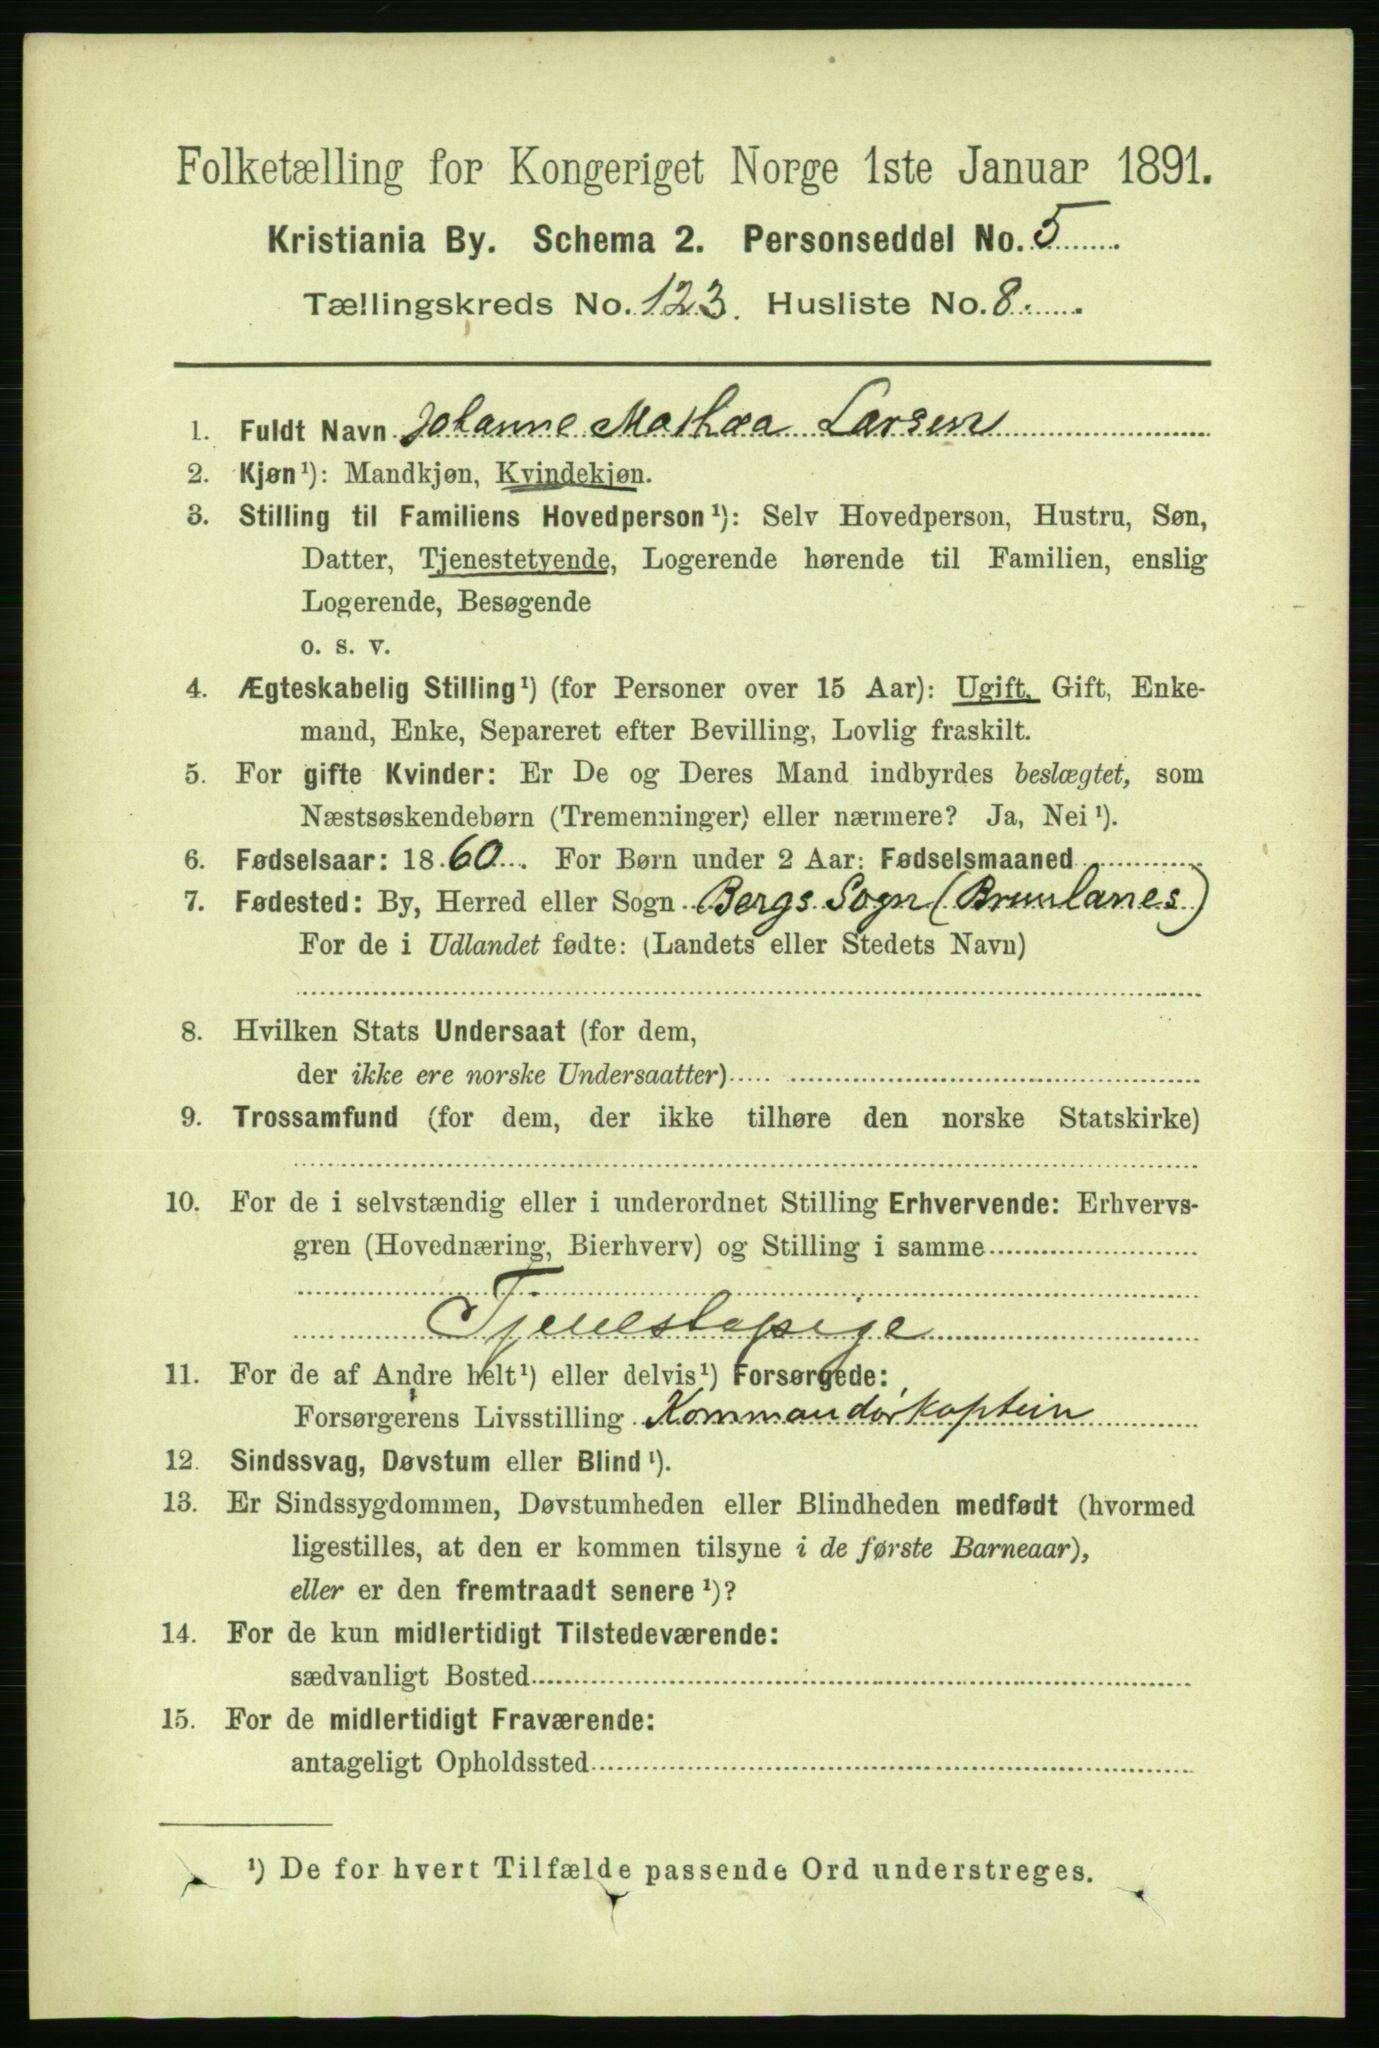 Folketælling for Kongeriget Norge 1ste Januar 1891.
Kristiania By. Schema 2. Personseddel No. 5
Tællingskreds No. 123. Husliste No. 8
1. Fuldt Navn Johanne Mathea Larsen
2. Kjøn¹): Mandkjøn, Kvindekjøn.
3. Stilling til Familiens Hovedperson¹): Selv Hovedperson, Hustru, Søn,
Datter, Tjenestetyende, Logerende hørende til Familien, enslig
Logerende, Besøgende
o. s. v.
4. Ægteskabelig Stilling¹) (for Personer over 15 Aar): Ugift, Gift, Enke-
mand, Enke, Separeret efter Bevilling, Lovlig fraskilt.
5. For gifte Kvinder: Er De og Deres Mand indbyrdes beslægtet, som
Næstsøskendebørn (Tremenninger) eller nærmere? Ja, Nei¹).
6. Fødselsaar: 1860. For Børn under 2 Aar: Fødselsmaaned
7. Fødested: By, Herred eller Sogn Bergs Sogn (Brunlanes)
For de i Udlandet fødte: (Landets eller Stedets Navn)
8. Hvilken Stats Undersaat (for dem,
der ikke ere norske Undersaatter)
9. Trossamfund (for dem, der ikke tilhøre den norske Statskirke)
10. For de i selvstændig eller i underordnet Stilling Erhvervende: Erhvervs-
gren (Hovednæring, Bierhverv) og Stilling i samme
Tjenestepige
11. For de af Andre helt¹) eller delvis¹) Forsørgede:
Forsørgerens Livsstilling Kommandørkaptein
12. Sindssvag, Døvstum eller Blind¹).
13. Er Sindssygdommen, Døvstumheden eller Blindheden medfødt (hvormed
ligestilles, at den er kommen tilsyne i de første Barneaar),
eller er den fremtraadt senere¹)?
14. For de kun midlertidigt Tilstedeværende:
sædvanligt Bosted
15. For de midlertidigt Fraværende:
antageligt Opholdssted
¹) De for hvert Tilfælde passende Ord understreges.